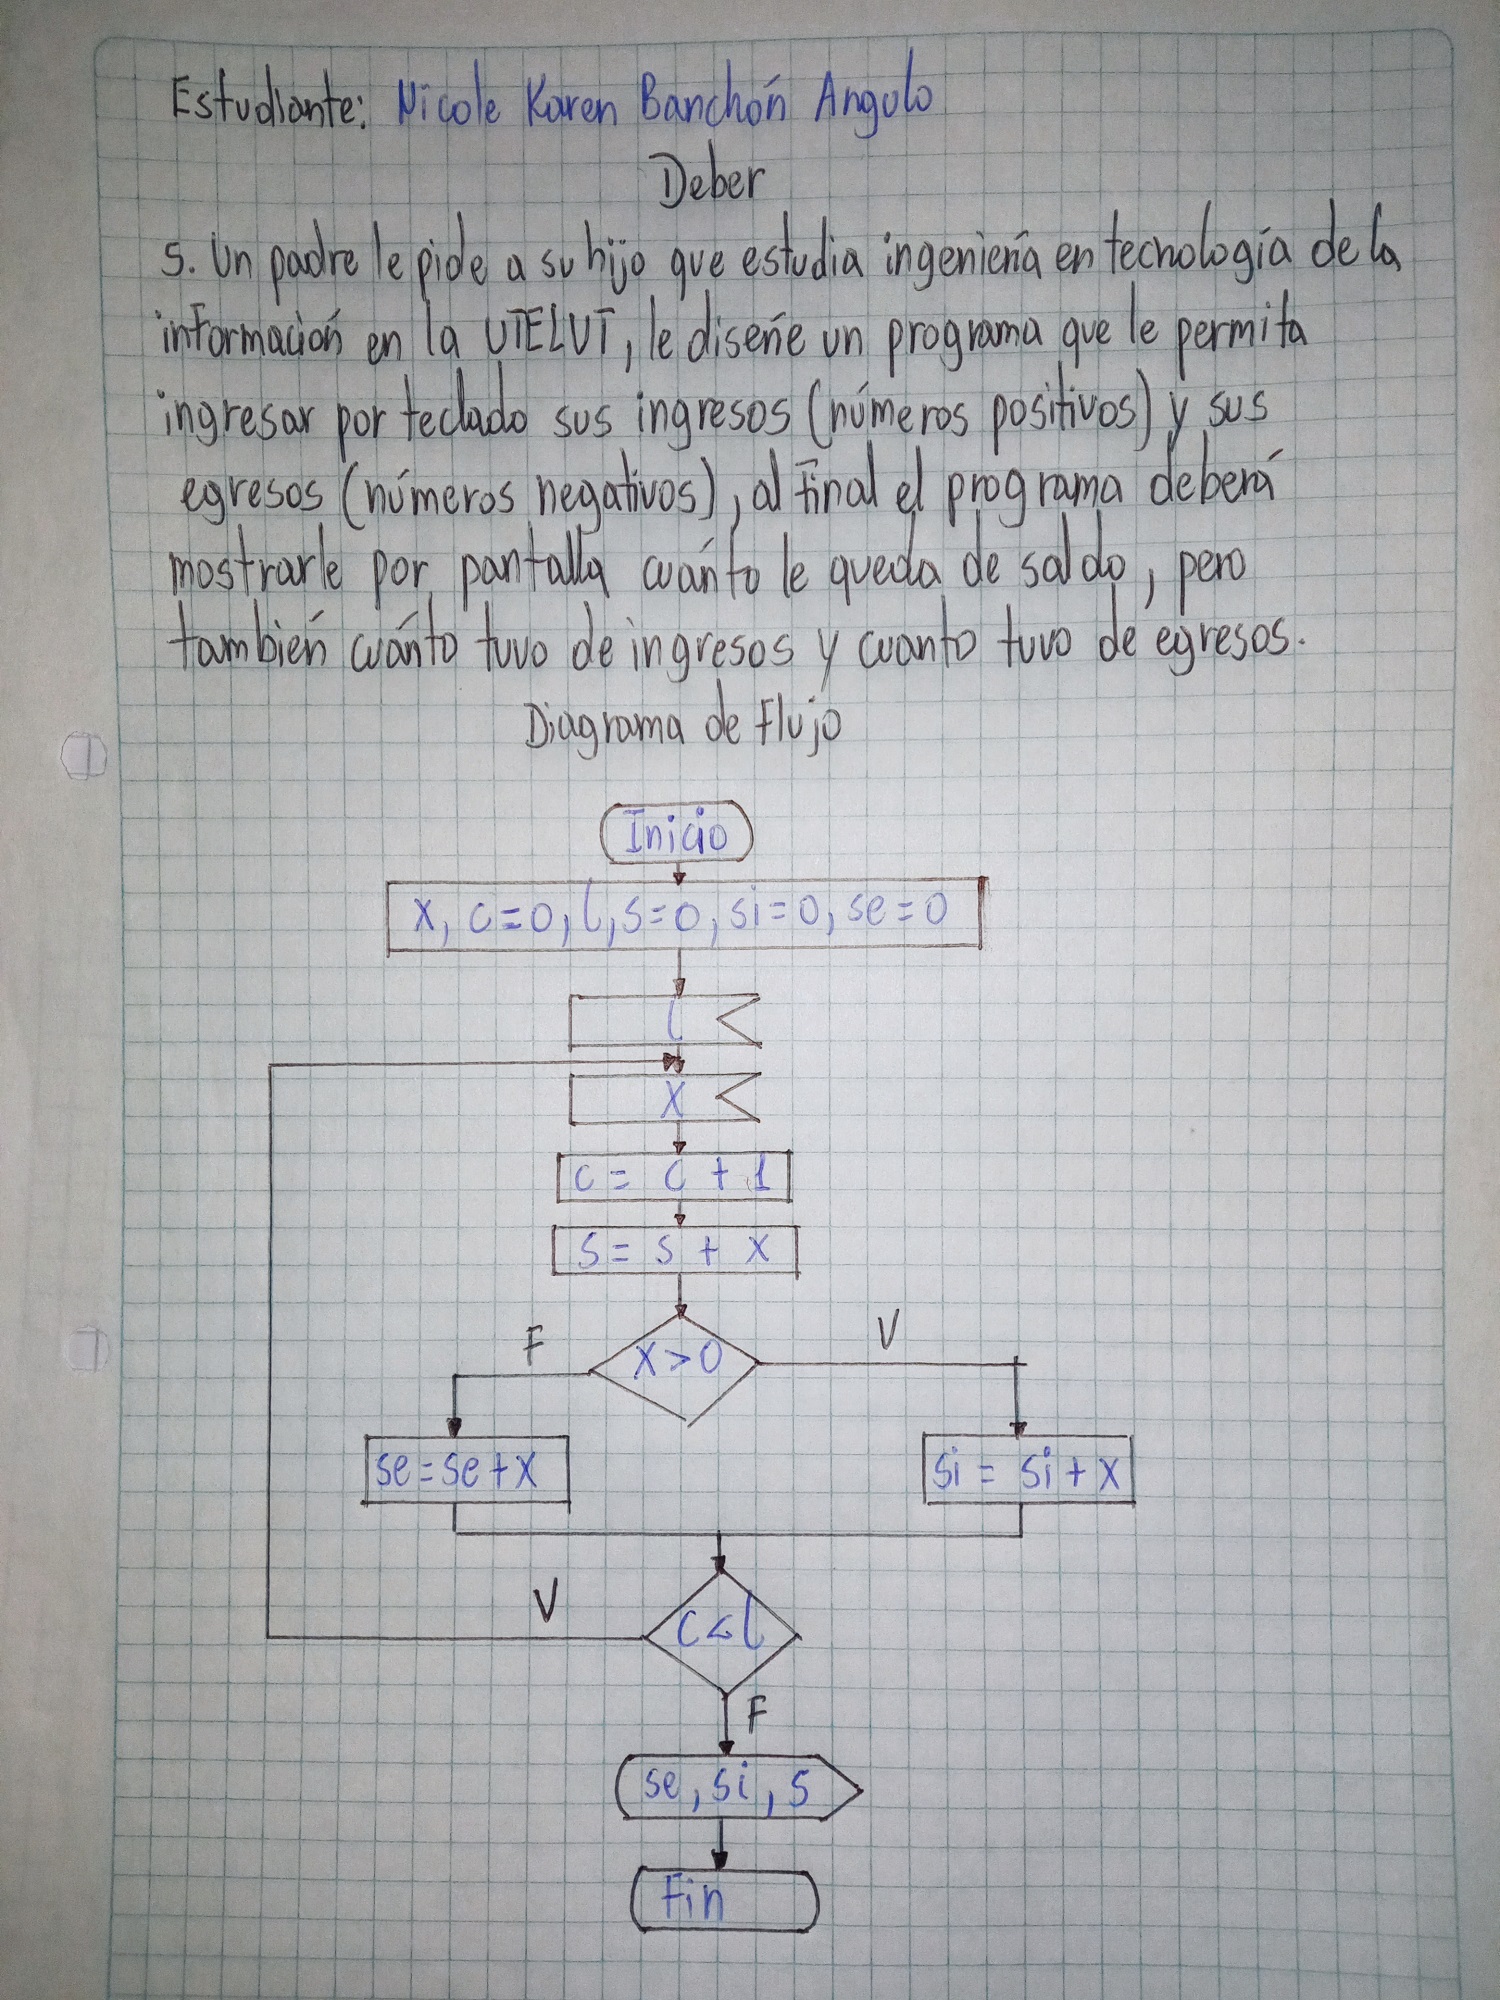 Estudiante: Nicole Karen Banchón Angulo
Deber
5. Un padre le pide a su hijo que estudia ingeniería en tecnología de la
información en la UTELVT, le diseñe un programa que le permita
ingresar por teclado sus ingresos (números positivos) y sus
egresos (números negativos), al final el programa deberá
mostrarle por pantalla cuánto le queda de saldo, pero
también cuánto tuvo de ingresos y cuanto tuvo de egresos.
Diagrama de Flujo
Inicio
X, c=0, l, s=0, si=0, se=0
l
X
c = c + 1
s = s + x
F
X>0
V
se=se+x
si = si+x
V
c<l
F
se, si, s
Fin